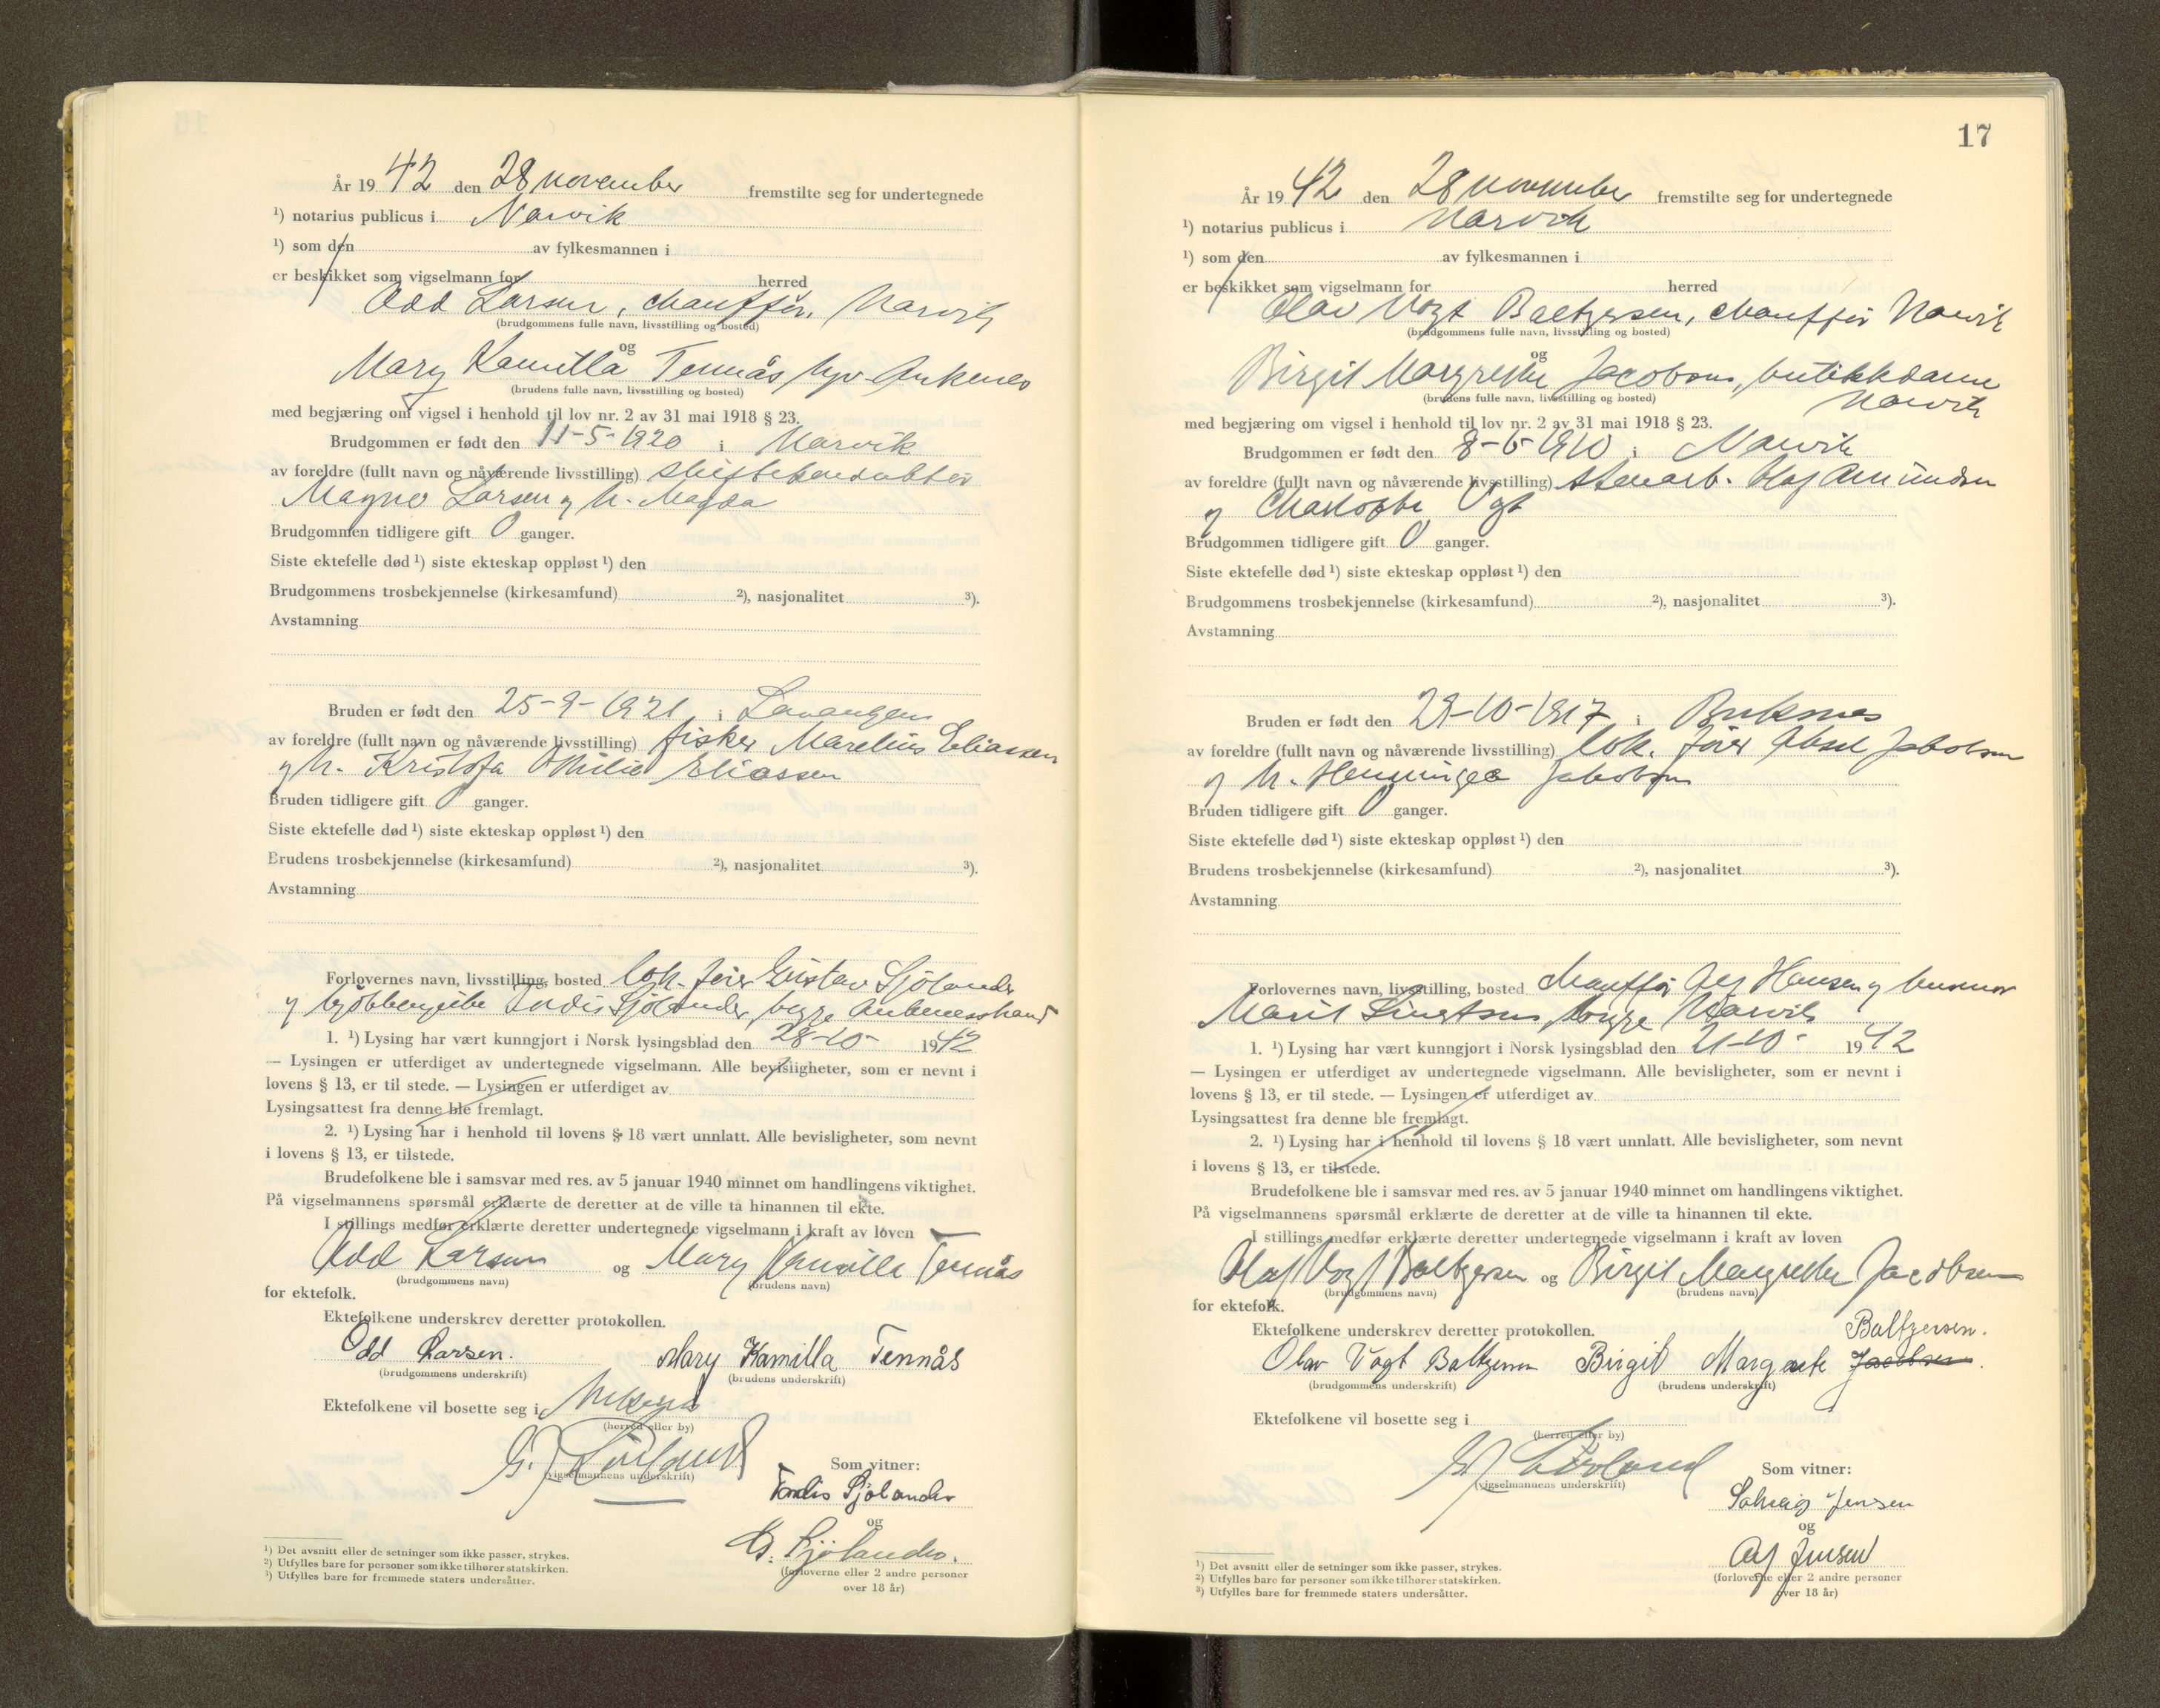 År 1942 den 28 november fremstilte seg for undertegnede
¹) notarius publicus i Narvik
¹) som den av fylkesmannen i
er beskikket som vigselmann for herred
Odd Larsen, chauffør, Narvik
(brudgommens fulle navn, livsstilling og bosted)
og
Mary Kamilla Tennås hjv. Ankenes
(brudens fulle navn, livsstilling og bosted)
med begjæring om vigsel i henhold til lov nr. 2 av 31 mai 1918 § 23.
Brudgommen er født den 11-5-1920 i Narvik
av foreldre (fullt navn og nåværende livsstilling) skiftekonduktør
Magne Larsen og h. Magda
Brudgommen tidligere gift 0 ganger.
Siste ektefelle død ¹) siste ekteskap oppløst ¹) den
Brudgommens trosbekjennelse (kirkesamfund) ²), nasjonalitet ³).
Avstamning
Bruden er født den 25-9-1921 i Lavangen
av foreldre (fullt navn og nåværende livsstilling) fisker Marelius Eliassen
og h. Kristofa Othilie Eliassen
Bruden tidligere gift 0 ganger.
Siste ektefelle død ¹) siste ekteskap oppløst ¹) den
Brudens trosbekjennelse (kirkesamfund) ²), nasjonalitet ³).
Avstamning
Forlovernes navn, livsstilling, bosted lok. fører Gustav Sjölander
og Sjölander, begge Ankenesstrand
1. ¹) Lysing har vært kunngjort i Norsk lysingsblad den 28-10- 1942
— Lysingen er utferdiget av undertegnede vigselmann. Alle bevisligheter, som er nevnt i
lovens § 13, er til stede. — Lysingen er utferdiget av
Lysingsattest fra denne ble fremlagt.
2. ¹) Lysing har i henhold til lovens § 18 vært unnlatt. Alle bevisligheter, som nevnt
i lovens § 13, er tilstede.
Brudefolkene ble i samsvar med res. av 5 januar 1940 minnet om handlingens viktighet.
På vigselmannens spørsmål erklærte de deretter at de ville ta hinannen til ekte.
I stillings medfør erklærte deretter undertegnede vigselmann i kraft av loven
Odd Larsen og Mary Kamilla Tennås
(brudgommens navn) (brudens navn)
for ektefolk.
Ektefolkene underskrev deretter protokollen.
Odd Larsen. Mary Kamilla Tennås
(brudgommens underskrift) (brudens underskrift)
Ektefolkene vil bosette seg i Ankenes
(herred eller by)
(vigselmannens underskrift)
Som vitner:
Sjölander
og
G. Sjölander.
(forloverne eller 2 andre personer
over 18 år)
¹) Det avsnitt eller de setninger som ikke passer, strykes.
²) Utfylles bare for personer som ikke tilhører statskirken.
³) Utfylles bare for fremmede staters undersåtter.
17
År 1942 den 28 november fremstilte seg for undertegnede
¹) notarius publicus i Narvik
¹) som den av fylkesmannen i
er beskikket som vigselmann for herred
Olav Vogt Baltzersen, chauffør Narvik
(brudgommens fulle navn, livsstilling og bosted)
og
Birgit Margrethe Jacobsen, butikkdame
(brudens fulle navn, livsstilling og bosted)
Narvik
med begjæring om vigsel i henhold til lov nr. 2 av 31 mai 1918 § 23.
Brudgommen er født den 8-6-1910 i Narvik
av foreldre (fullt navn og nåværende livsstilling) stenarb. Olaf Amundsen
og Charlotte Vogt
Brudgommen tidligere gift 0 ganger.
Siste ektefelle død ¹) siste ekteskap oppløst ¹) den
Brudgommens trosbekjennelse (kirkesamfund) ²), nasjonalitet ³).
Avstamning
Bruden er født den 29-10-1917 i Buksnes
av foreldre (fullt navn og nåværende livsstilling) lok. fører Aksel Jakobsen
og h. Henninge Jakobsen
Bruden tidligere gift 0 ganger.
Siste ektefelle død ¹) siste ekteskap oppløst ¹) den
Brudens trosbekjennelse (kirkesamfund) ²), nasjonalitet ³).
Avstamning
Forlovernes navn, livsstilling, bosted chauffør Alf Hansen og husmor
Marit begge Narvik
1. ¹) Lysing har vært kunngjort i Norsk lysingsblad den 21-10- 1942
— Lysingen er utferdiget av undertegnede vigselmann. Alle bevisligheter, som er nevnt i
lovens § 13, er til stede. — Lysingen er utferdiget av
Lysingsattest fra denne ble fremlagt.
2. ¹) Lysing har i henhold til lovens § 18 vært unnlatt. Alle bevisligheter, som nevnt
i lovens § 13, er tilstede.
Brudefolkene ble i samsvar med res. av 5 januar 1940 minnet om handlingens viktighet.
På vigselmannens spørsmål erklærte de deretter at de ville ta hinannen til ekte.
I stillings medfør erklærte deretter undertegnede vigselmann i kraft av loven
Olaf Vogt Baltzersen og Birgit Margrethe Jacobsen
(brudgommens navn) (brudens navn)
for ektefolk.
Ektefolkene underskrev deretter protokollen. Baltzersen.
Olav Vogt Baltzersen Birgit Margrete Jacobsen.
(brudgommens underskrift) (brudens underskrift)
Ektefolkene vil bosette seg i
(herred eller by)
(vigselmannens underskrift)
Som vitner:
Solveig Jensen
og
Alf Jensen
(forloverne eller 2 andre personer
over 18 år)
¹) Det avsnitt eller de setninger som ikke passer, strykes.
²) Utfylles bare for personer som ikke tilhører statskirken.
³) Utfylles bare for fremmede staters undersåtter.